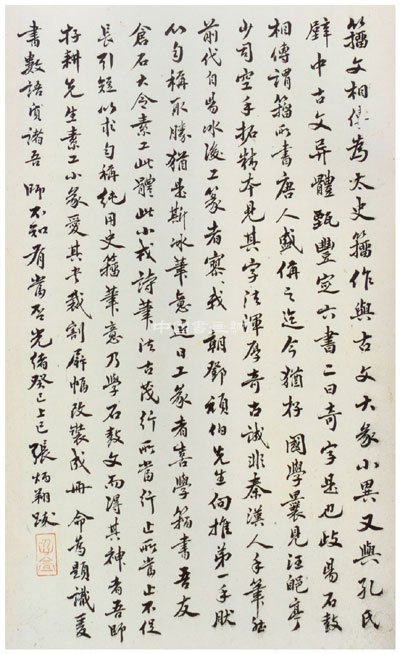 籀文相傳為太史籀作與古文大篆小異又與孔氏
壁中古文异體甄豐定六書二曰奇字是也岐陽石鼓
相傳謂籀所書唐人盛偁之迄今猶存國學曩見汪皅亭
少司空手拓精本見其字法渾厚奇古誠非秦漢人手筆然
前代自陽冰後工篆者寥〻我朝鄧頑伯先生向推第一手肰
以勻稱取勝猶是斯冰筆意近日工篆者喜學籀書吾友
倉石大令素工此體此小戎詩筆法古茂行所當行止所當止不促
長引短以求勻稱純用史籀筆意乃學石鼓文而得其神者吾師
存耕先生素工小篆愛其書裁割屏幅改裝成冊命為題識爰
書數語質諸吾師不知有當否光緒癸巳上巳張炳翔跋